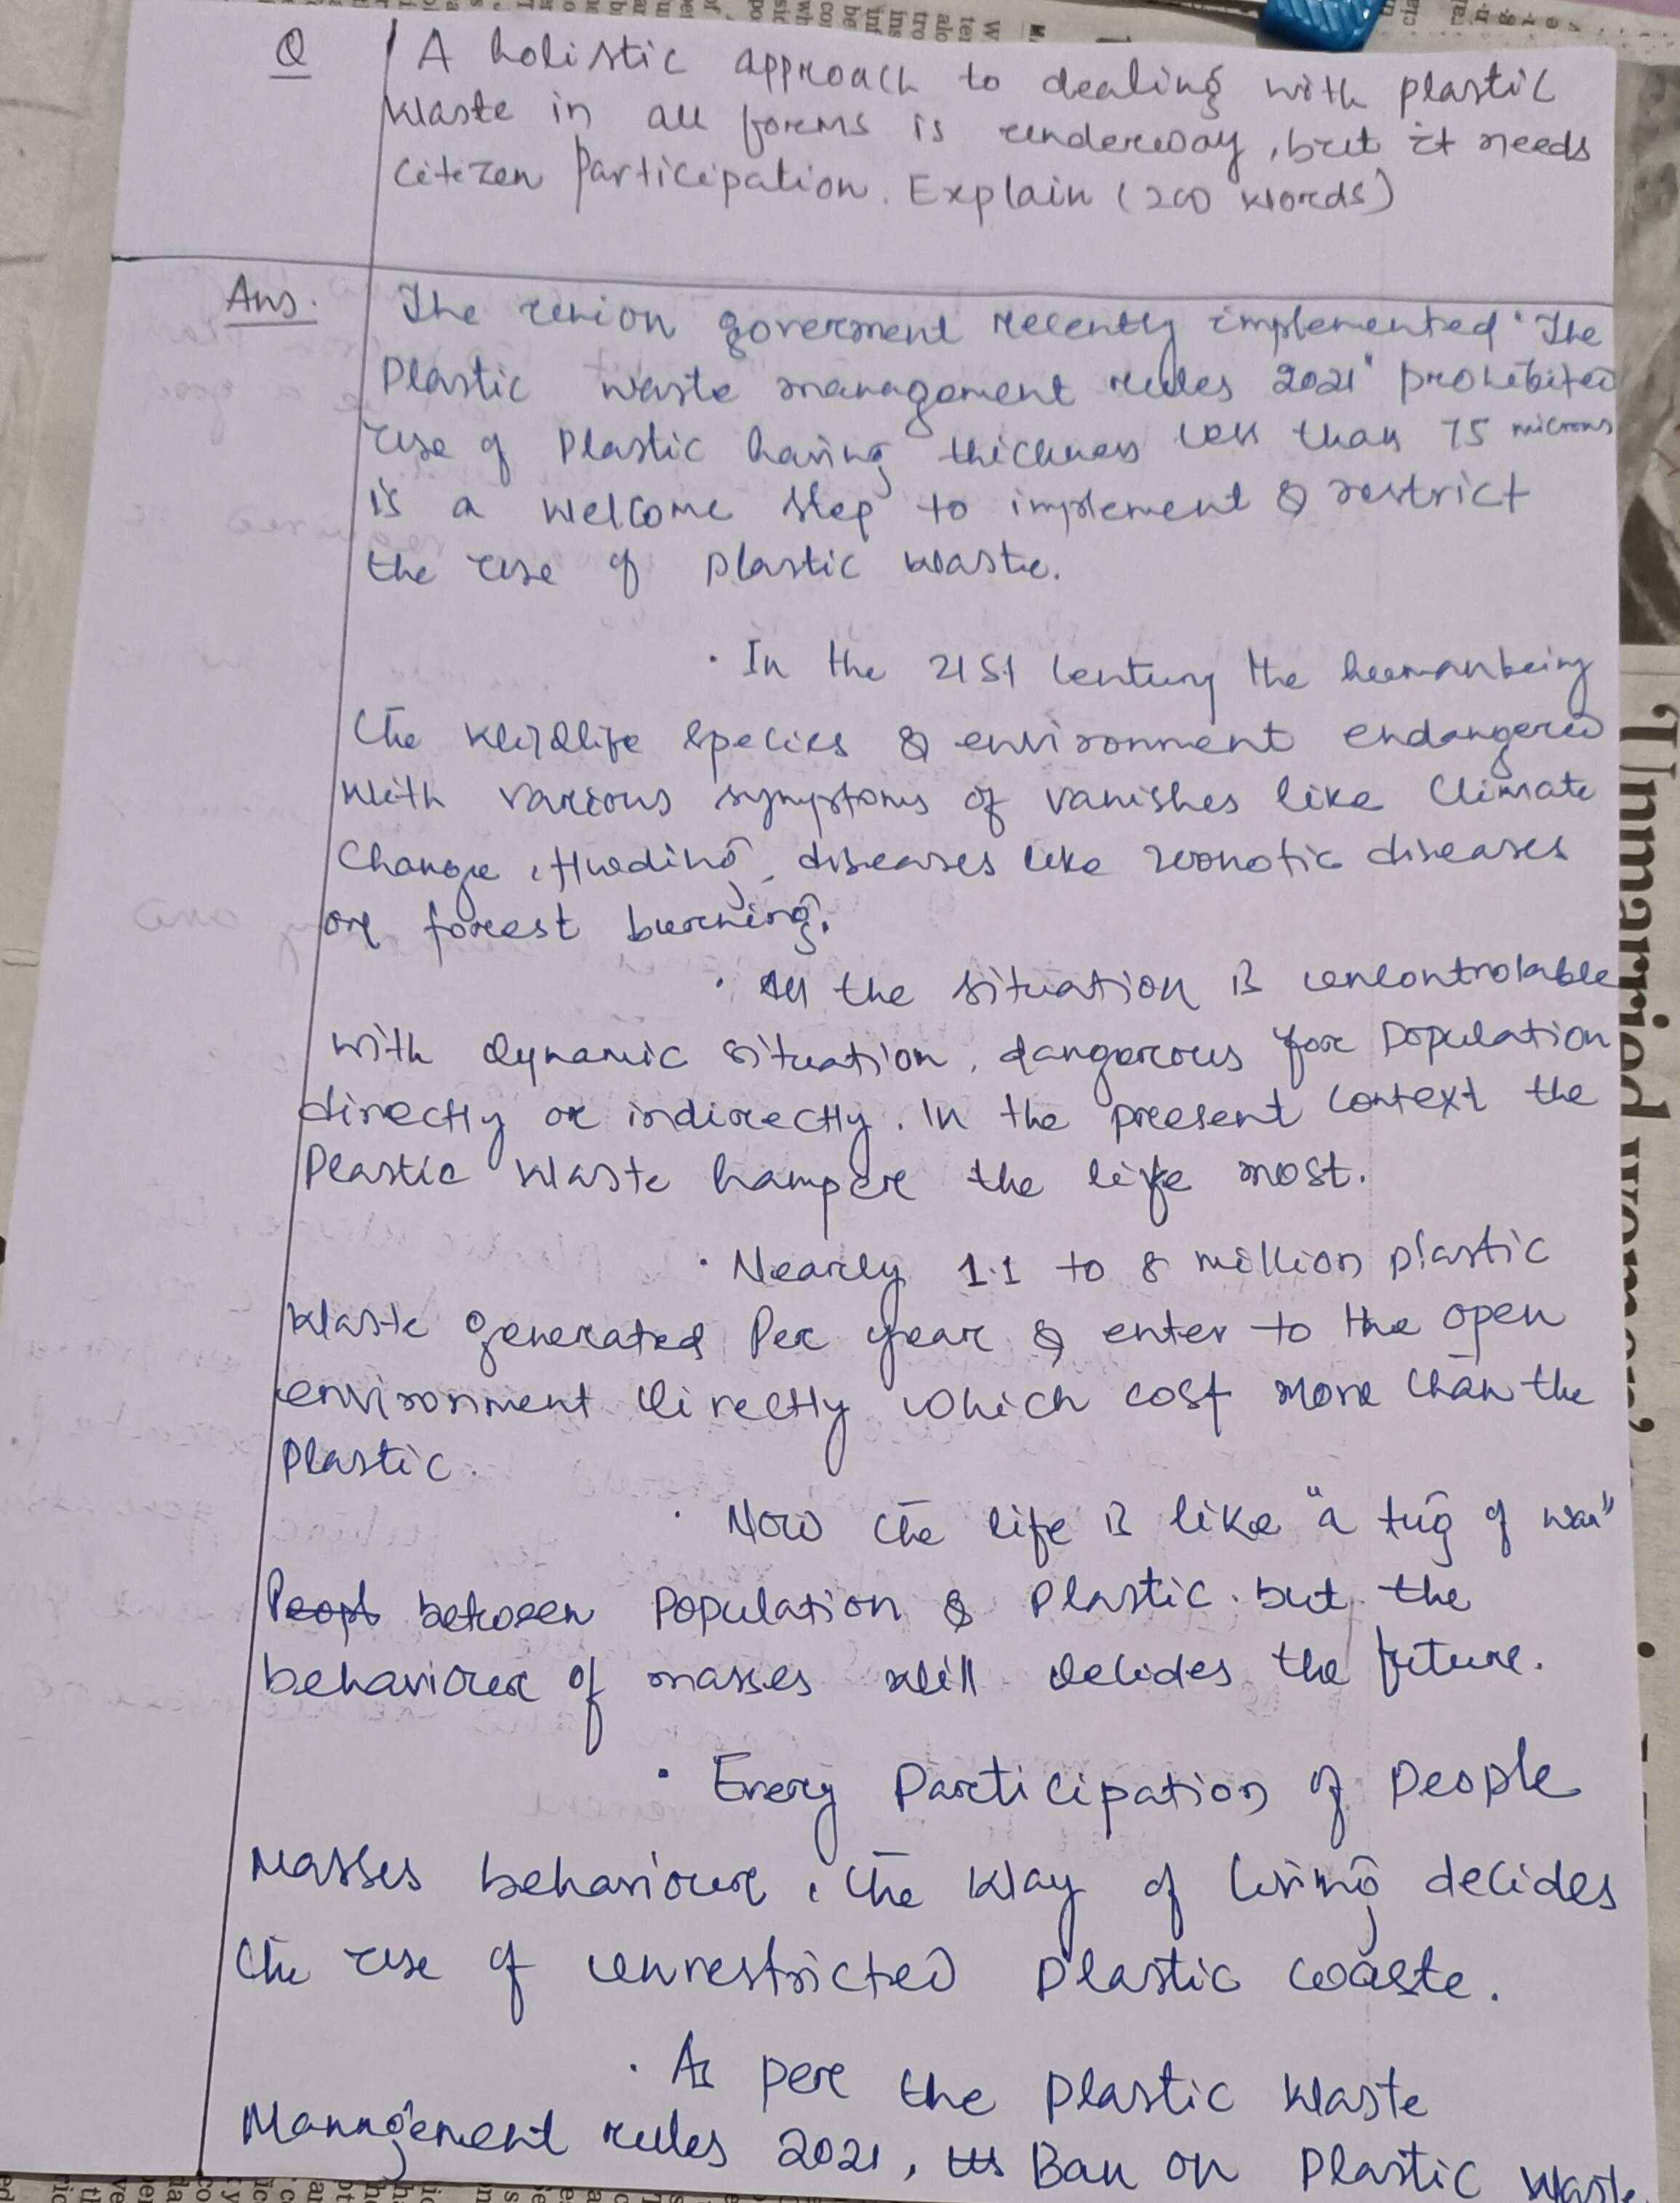 Q A holistic approach to dealing with plastic
waste in all forms is underway, but it needs
Citizen Participation. Explain (200 words)
Ans. The union goverment recently implemented "The
Plastic waste management rules 2021" prohibited
use of Plastic having thickness less than 75 microns
is a welcome step to implement & restrict
the use of plastic waste.
• In the 21st century the humanbeing
the wildlife species & environment endangered
with various symptoms of vanishes like Climate
Change, flooding, diseases like zoonotic diseases
or forest burning.
• All the situation is uncontrolable
with dynamic situation, dangerous for Population
directly or indirectly. In the present context the
Plastic waste hamper the life most.
• Nearly 1.1 to 8 million plastic
waste generated Per year & enter to the open
environment directly which cost more than the
Plastic.
• Now the life is like "a tug of war"
Peopl between Population & Plastic. but the
behaviour of masses will decides the future.
• Every Participation of People
Masses behaviour, the way of living decides
the use of unrestricted plastic waste.
• As per the Plastic waste
Management rules 2021, Ban on Plastic waste
'Unmarried women'